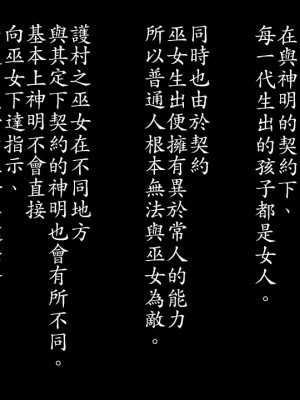 在與神明的契約下、
每一代生出的孩子都是女人。
同時也由於契約
巫女生出便擁有異於常人的能力
所以普通人根本無法與巫女為敵。
護村之巫女在不同地方
與其定下契約的神明也會有所不同。
基本上神明不會直接
向巫女下達指示、